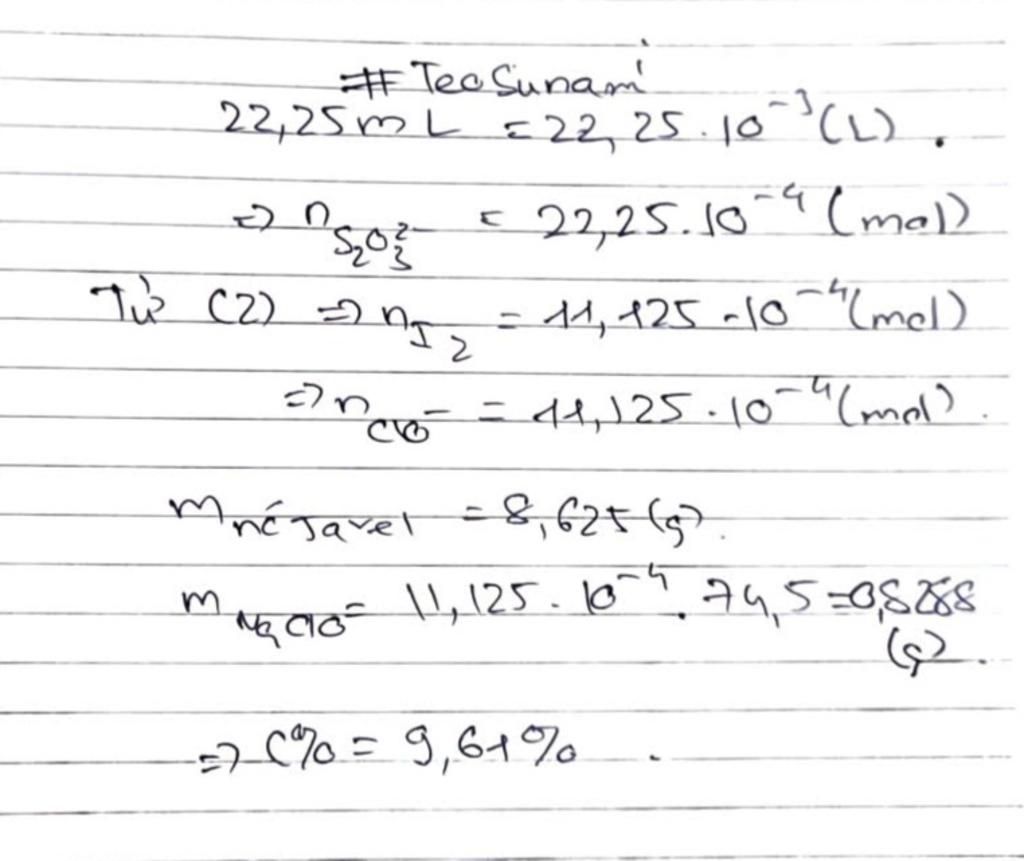 # TeoSunami
22,25 mL = 22,25 . 10⁻³ (L) .
=> n S₂O₃²⁻ = 22,25 . 10⁻⁴ (mol)
Từ (2) => n I₂ = 11,125 . 10⁻⁴ (mol)
=> n ClO⁻ = 11,125 . 10⁻⁴ (mol) .
m nc Javel = 8,625 (g) .
m NaClO = 11,125 . 10⁻⁴ . 74,5 =
(g) .
=> C% = 9,61% .